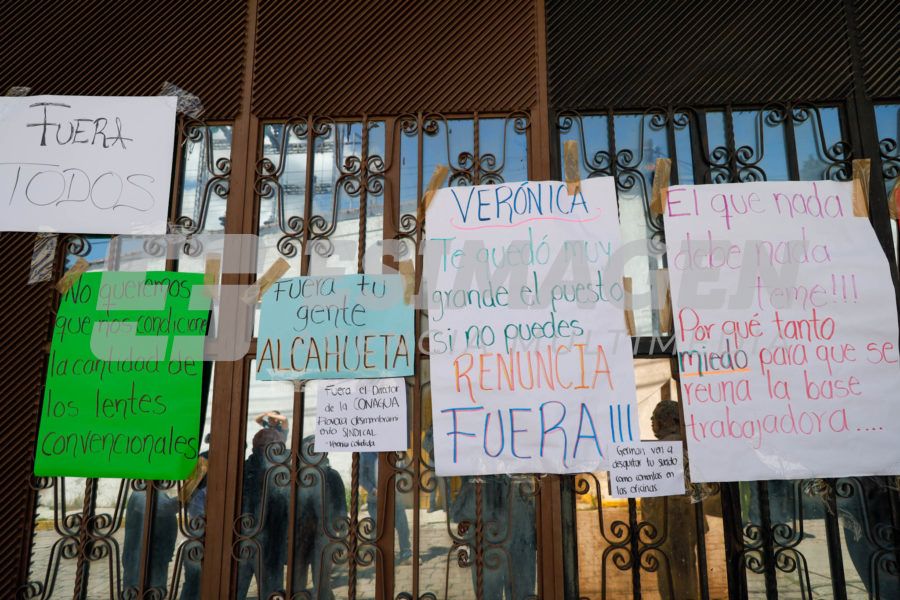 FUERA
TODOS
No queremos
que nos condicione
la cantidad de
los lentes
convencionales
Fuera tu
gente
ALCAHUETA
Fuera el Director
de la CONAGUA
envío SINDICAL
VERÓNICA
Te quedó muy
grande el puesto
si no puedes
RENUNCIA
FUERA!!!
German ven a
desquitar tu sueldo
como comentas en
las oficinas
El que nada
debe nada
teme!!!
Por qué tanto
miedo para que se
reuna la base
trabajadora....
ESIMAGEN